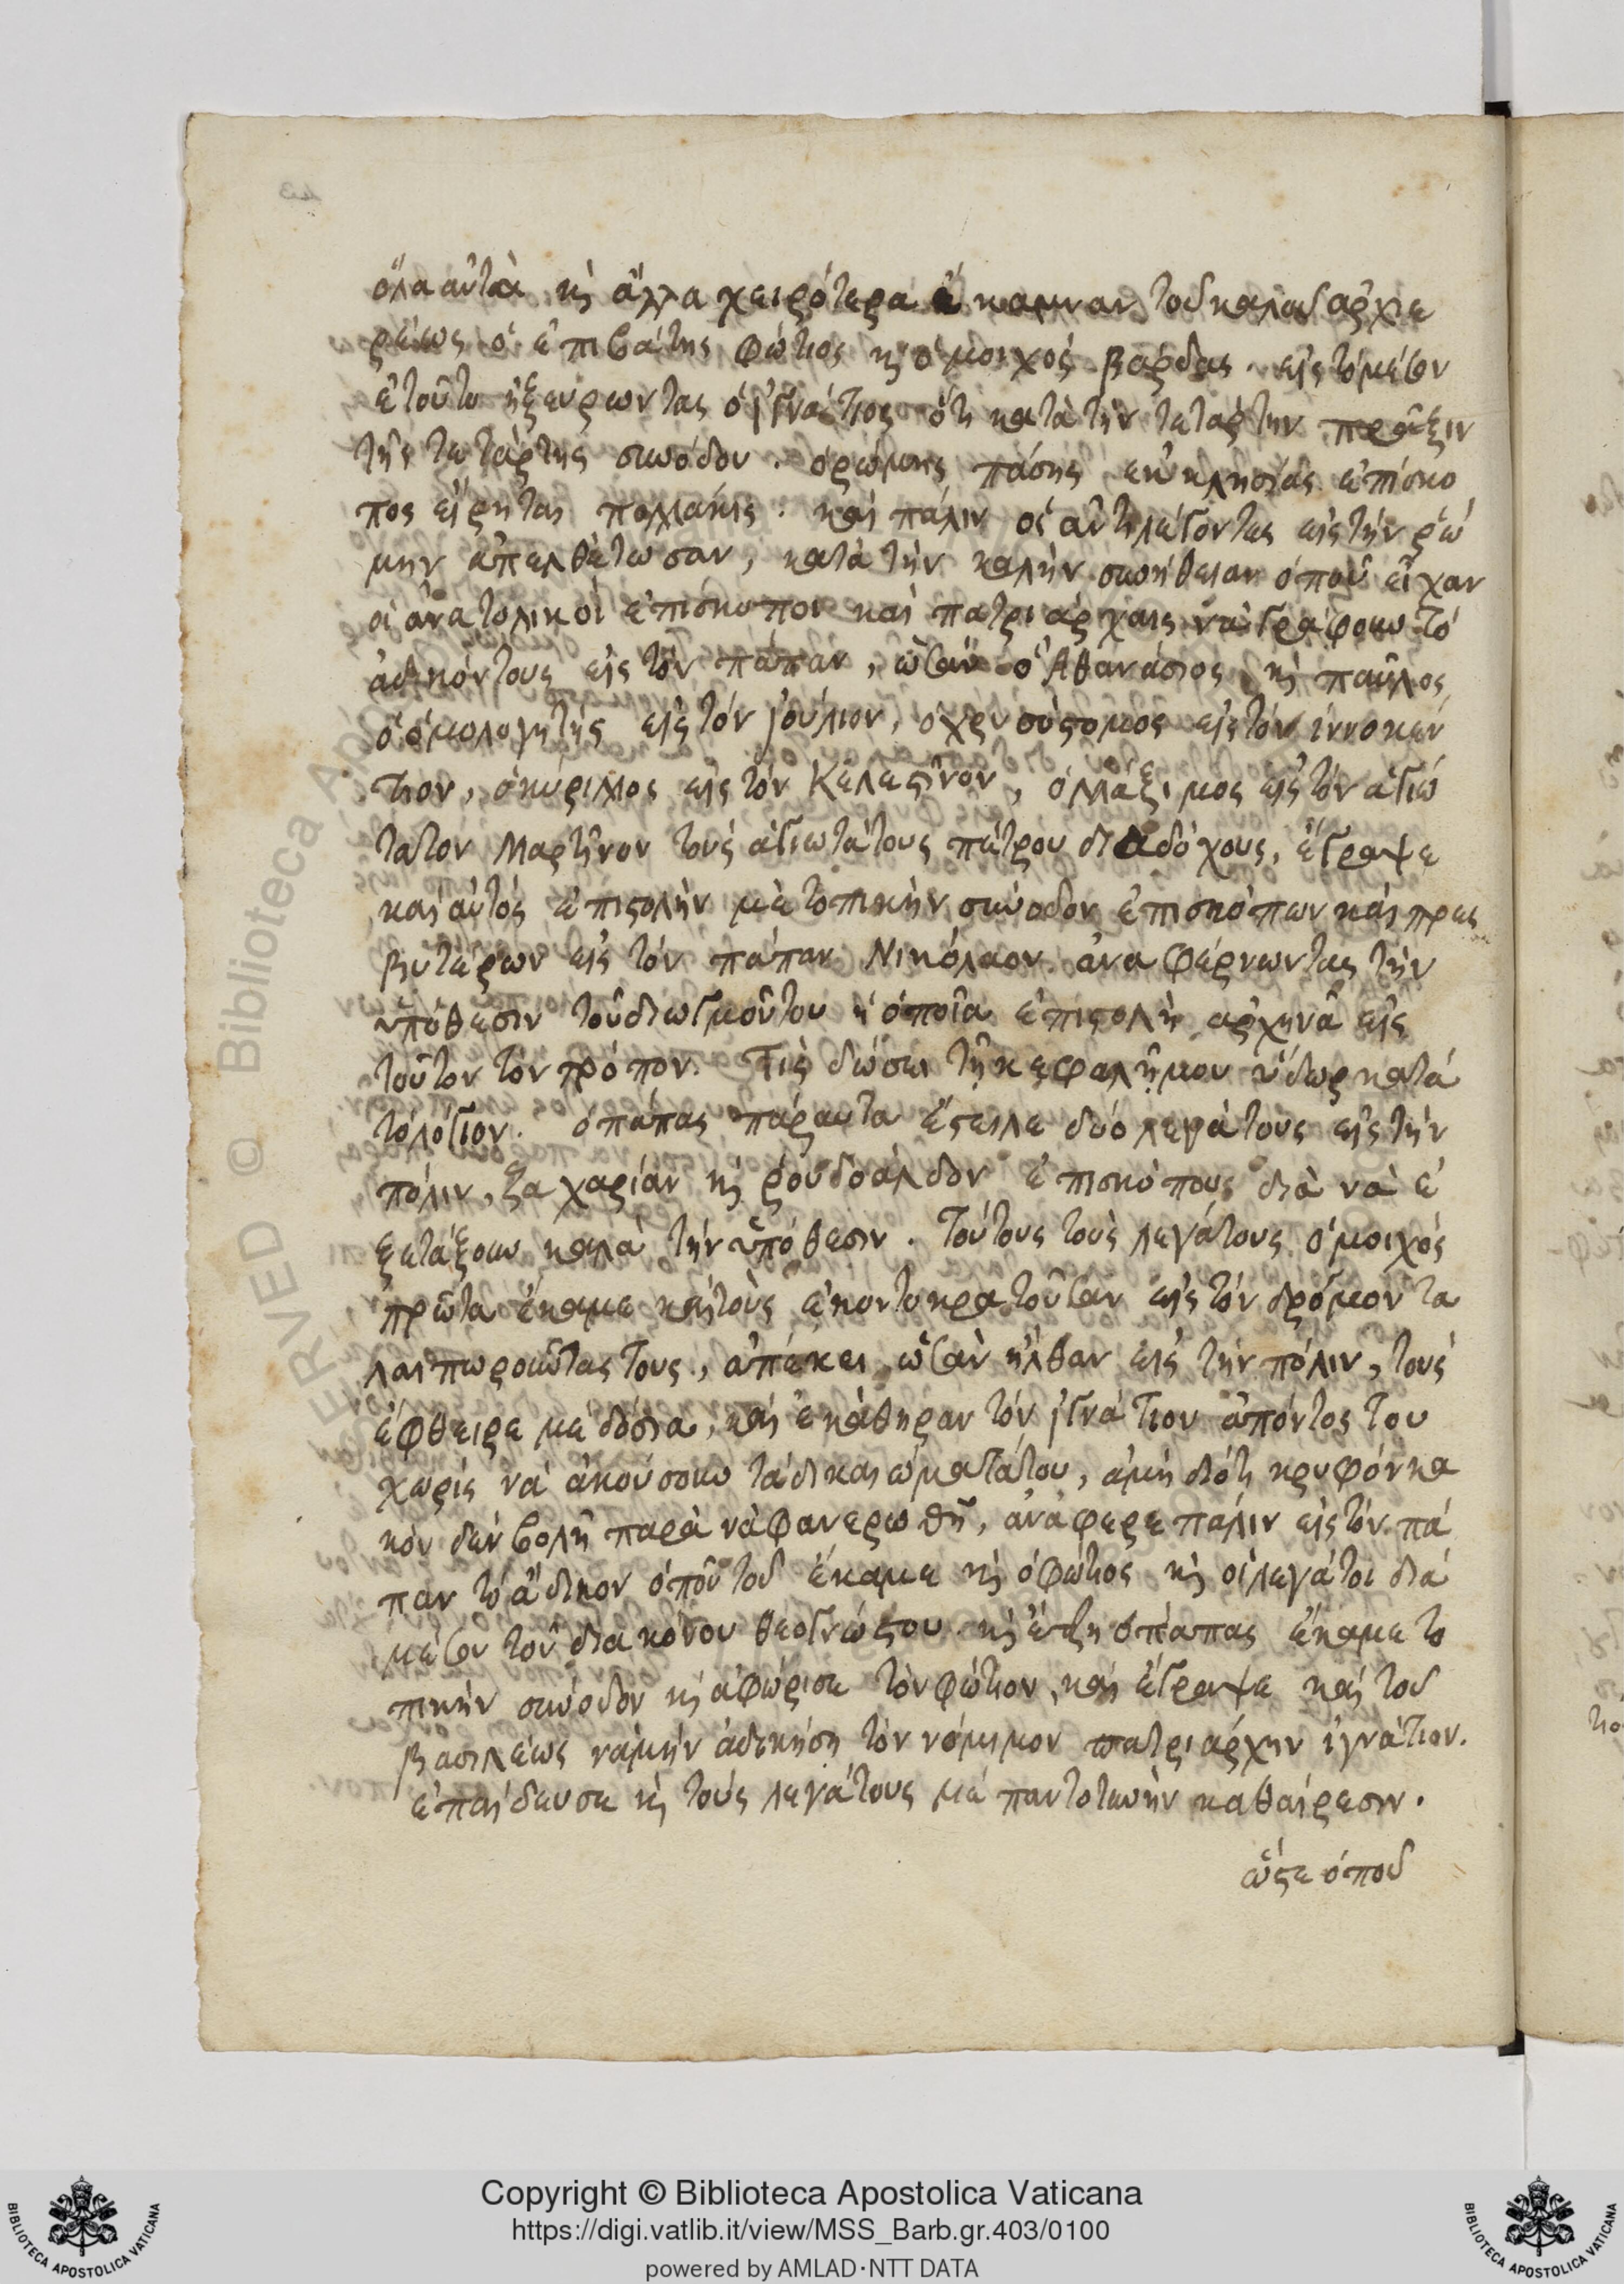 ὅλα αὐτὰ κὶ ἄλλα χειρότερα ἔκαμναν τοῦ καλοῦ ἀρχιε
ρέως ὁ ἐπιβάτης φώτιος κὶ ὁ μοιχός βάρδας. εἰς τὸ μέσον
ἐτοῦτο ἠξεύρωντας ὁ ἰγνάτιος ὅτι κατὰ τὴν τετάρτην πρᾶξιν
τῆς τετάρτης συνόδου. ὁρώμης πάσης ἐκκλησίας ἐπίσκο
πος εἴρηται πολλάκις. καὶ πάλιν οἱ ἀντιλέγοντες εἰς τὴν ῥώ
μην ἀπελθέτωσαν, κατὰ τὴν καλὴν συνήθειαν ὁποῦ εἶχαν
οἱ ἀνατολικοὶ ἐπίσκοποι καὶ πατριάρχαις νὰ γράφουν τὸ
ἄδικόν τους εἰς τὸν πάπαν, ὡσὰν ὁ Ἀθανάσιος κὶ παῦλος
ὁ ὁμολογητής εἰς τὸν ἰούλιον, ὁ χρυσόστομος εἰς τὸν ἰννοκέν
τιον, ὁ κύριλλος εἰς τὸν Κελεστῖνον, ὁ Μάξιμος εἰς τὸν ἁγιώ
τατον Μαρτῖνον τοὺς ἁγιωτάτους πέτρου διαδόχους, ἔγραψε
καὶ αὐτός ἐπιστολὴν μὲ τοπικὴν σύνοδον ἐπισκόπων καὶ πρεσ
βυτέρων εἰς τὸν πάπαν Νικόλαον ἀναφέρνωντας τὴν
ὑπόθεσιν τοῦ διωγμοῦ του ἡ ὁποῖα ἐπιστολὴ ἀρχηνᾶ εἰς
τοῦτον τὸν τρόπον. Τὶς δώσει τῇ κεφαλῇ μου ὕδωρ κατά
τὸ λόγιον. ὁ πάπας πάραυτα ἔστειλε δύο λεγάτους εἰς τὴν
πόλιν, ζαχαρίαν κὶ ῥουδοάλδον ἐπισκόπους διὰ νὰ ἐ
ξετάξουν καλὰ τὴν ὑπόθεσιν. Τούτους τοὺς λεγάτους ὁ μοιχός
πρῶτα ἔκαμε καὶ τοὺς ἐκοντοκρατοῦσαν εἰς τὸν δρόμον τα
λαιπωροῦντας τους, ἀπέκει ὡσὰν ἦλθαν εἰς τὴν πόλιν, τοὺς
ἔφθειρε μὲ δόσια, καὶ ἐκάθηραν τὸν ἰγνάτιον ἀπόντος του
χωρὶς νὰ ἀκούσουν τὰ δικαιώματά του, ἀμὴ διότι κρυφόν κα
κὸν δὲν βολῆ παρὰ νὰ φανερωθῆ, ἀνάφερε πάλιν εἰς τὸν πά
παν τὸ ἄδικον ὁποῦ τοῦ ἔκαμε κὶ ὁ φώτιος κὶ οἱ λεγάτοι διὰ
μέσου τοῦ διακόνου θεογνώστου. κὶ ἔτζη ὁ πάπας ἔκαμε το
πικὴν σύνοδον κὶ ἀφώρισε τὸν φώτιον, καὶ ἔγραψε καὶ τοῦ
βασιλέως νὰ μὴν ἀδικήση τὸν νόμιμον πατριάρχην ἰγνάτιον.
ἐπαίδευσε κὶ τοὺς λεγάτους μὲ παντοτεινὴν καθαίρεσιν.
ὥστε ὁποῦ
Copyright © Biblioteca Apostolica Vaticana
https://digi.vatlib.it/view/MSS_Barb.gr.403/0100
powered by AMLAD·NTT DATA